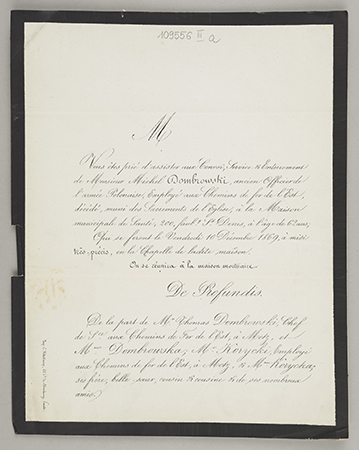 109556 II a
M
Vous êtes prié d'assister aux Convoi, Service & Enterrement
de Monsieur Michel Dombrowski, ancien Officier de
l'armée Polonaise, Employé aux Chemins de fer de l'Est,
décédé, muni des Sacrements de l'Eglise, à la Maison
municipale de Santé, 200, faubg. St. Denis, à l'âge de 62 ans,
Qui se feront le Vendredi 10 Décembre 1869, à midi
très-précis, en la Chapelle de ladite maison.
On se réunira à la maison mortuaire.
De Profundis.
De la part de Mr. Thomas Dombrowski, Chef
de Son aux Chemins de Fer de l'Est, à Metz, et
Mme. Dombrowska; Mr. Korycki, Employé
aux Chemins de fer de l'Est, à Metz, & Mme. Korycka;
ses frère, belle-sœur, cousin & cousine & de ses nombreux
amis.